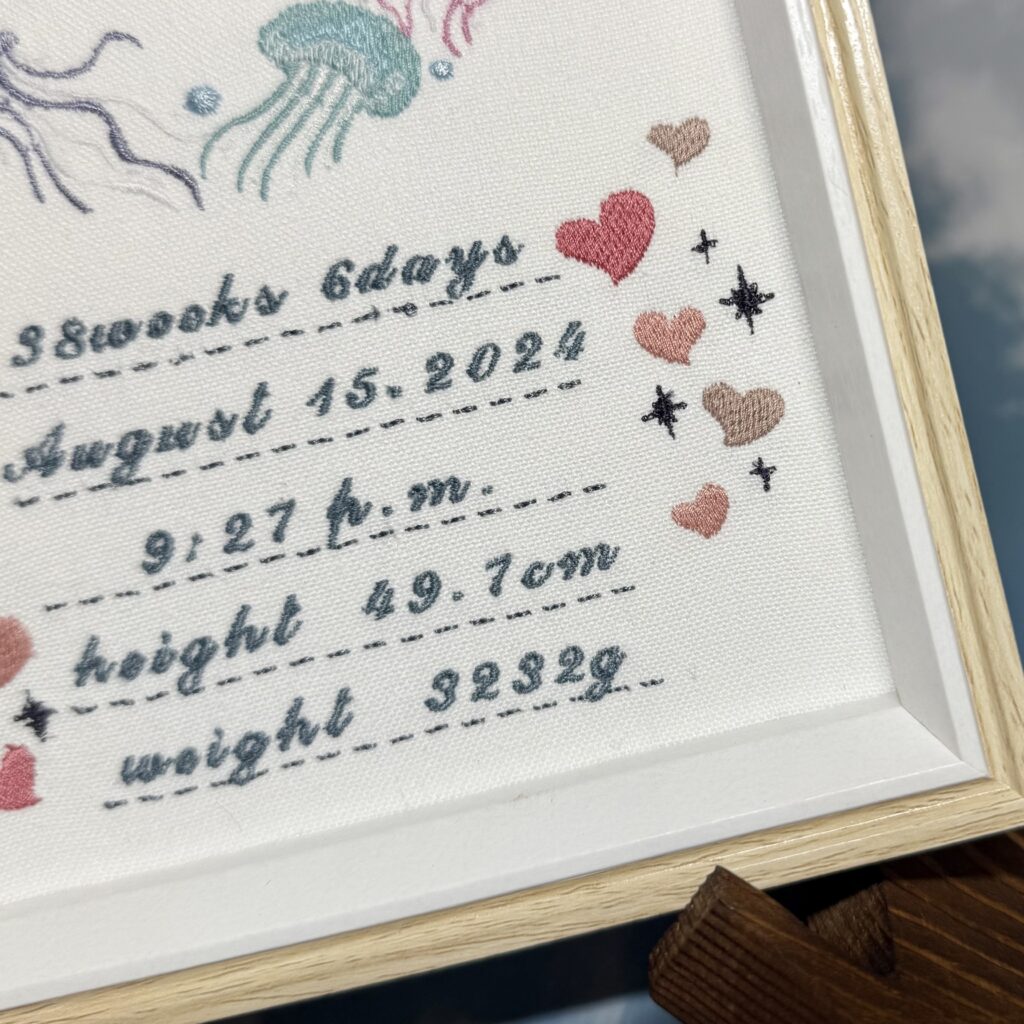 38weeks 6days
August 15.2024
9:27 p.m.
height 49.7cm
weight 3232g